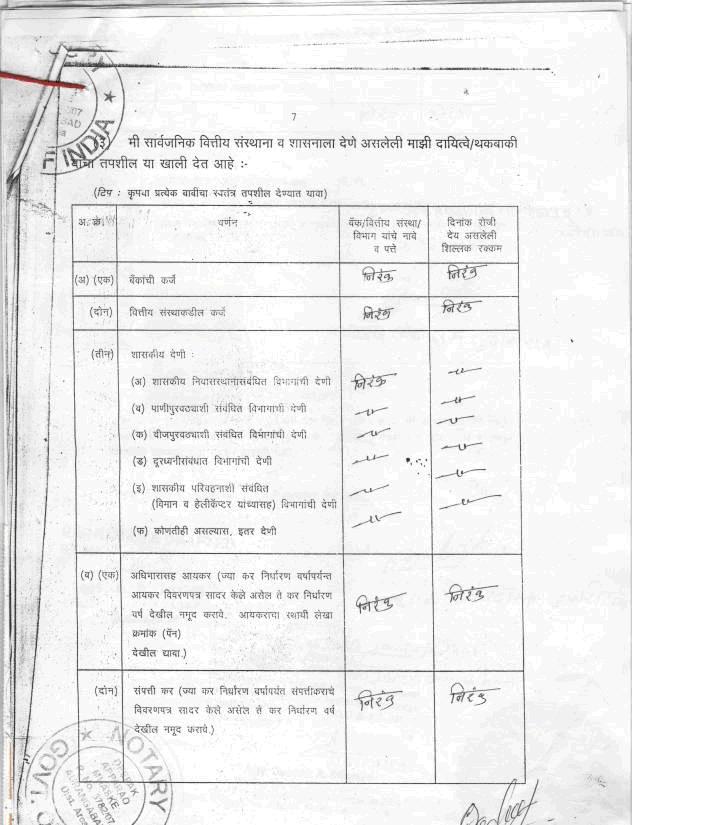 7
३) मी सार्वजनिक वित्तीय संस्थाना व शासनाला देणे असलेली माझी दायित्वे/थकबाकी
यांचा तपशील या खाली देत आहे :-
(टिप : कृपया प्रत्येक बाबीचा स्वतंत्र तपशील देण्यात यावा)
अ. क्रं. वर्णन बँक/वित्तीय संस्था/ दिनांक रोजी
विभाग यांचे नावे देय असलेली
व पत्ते शिल्लक रक्कम
(अ) (एक) बँकांची कर्जे निरंक निरंक
(दोन) वित्तीय संस्थाकडील कर्ज निरंक निरंक
(तीन) शासकीय देणी :
(अ) शासकीय निवासस्थानासंबंधित विभागांची देणी निरंक —॥—
(ब) पाणीपुरवठ्याशी संबंधित विभागाची देणी —॥— —॥—
(क) वीजपुरवठ्याशी संबंधित विभागांची देणी —॥— —॥—
(ड) दूरध्वनीसंबंधात विभागांची देणी —॥— —॥—
(इ) शासकीय परिवहनाशी संबंधित
(विमान व हेलीकॅप्टर यांच्यासह) विभागांची देणी —॥— —॥—
(फ) कोणतीही असल्यास, इतर देणी —॥— —॥—
(ब) (एक) अधिभारासह आयकर (ज्या कर निर्धारण वर्षापर्यन्त
आयकर विवरणपत्र सादर केले असेल ते कर निर्धारण
वर्ष देखील नमूद करावे. आयकराचा स्थायी लेखा निरंक निरंक
क्रमांक (पॅन)
देखील द्यावा.)
(दोन) संपत्ती कर (ज्या कर निर्धारण वर्षापर्यंत संपत्तीकराचे निरंक निरंक
विवरणपत्र सादर केले असेल ते कर निर्धारण वर्ष
देखील नमूद करावे.)
INDIA
NOTARY
GOVT.